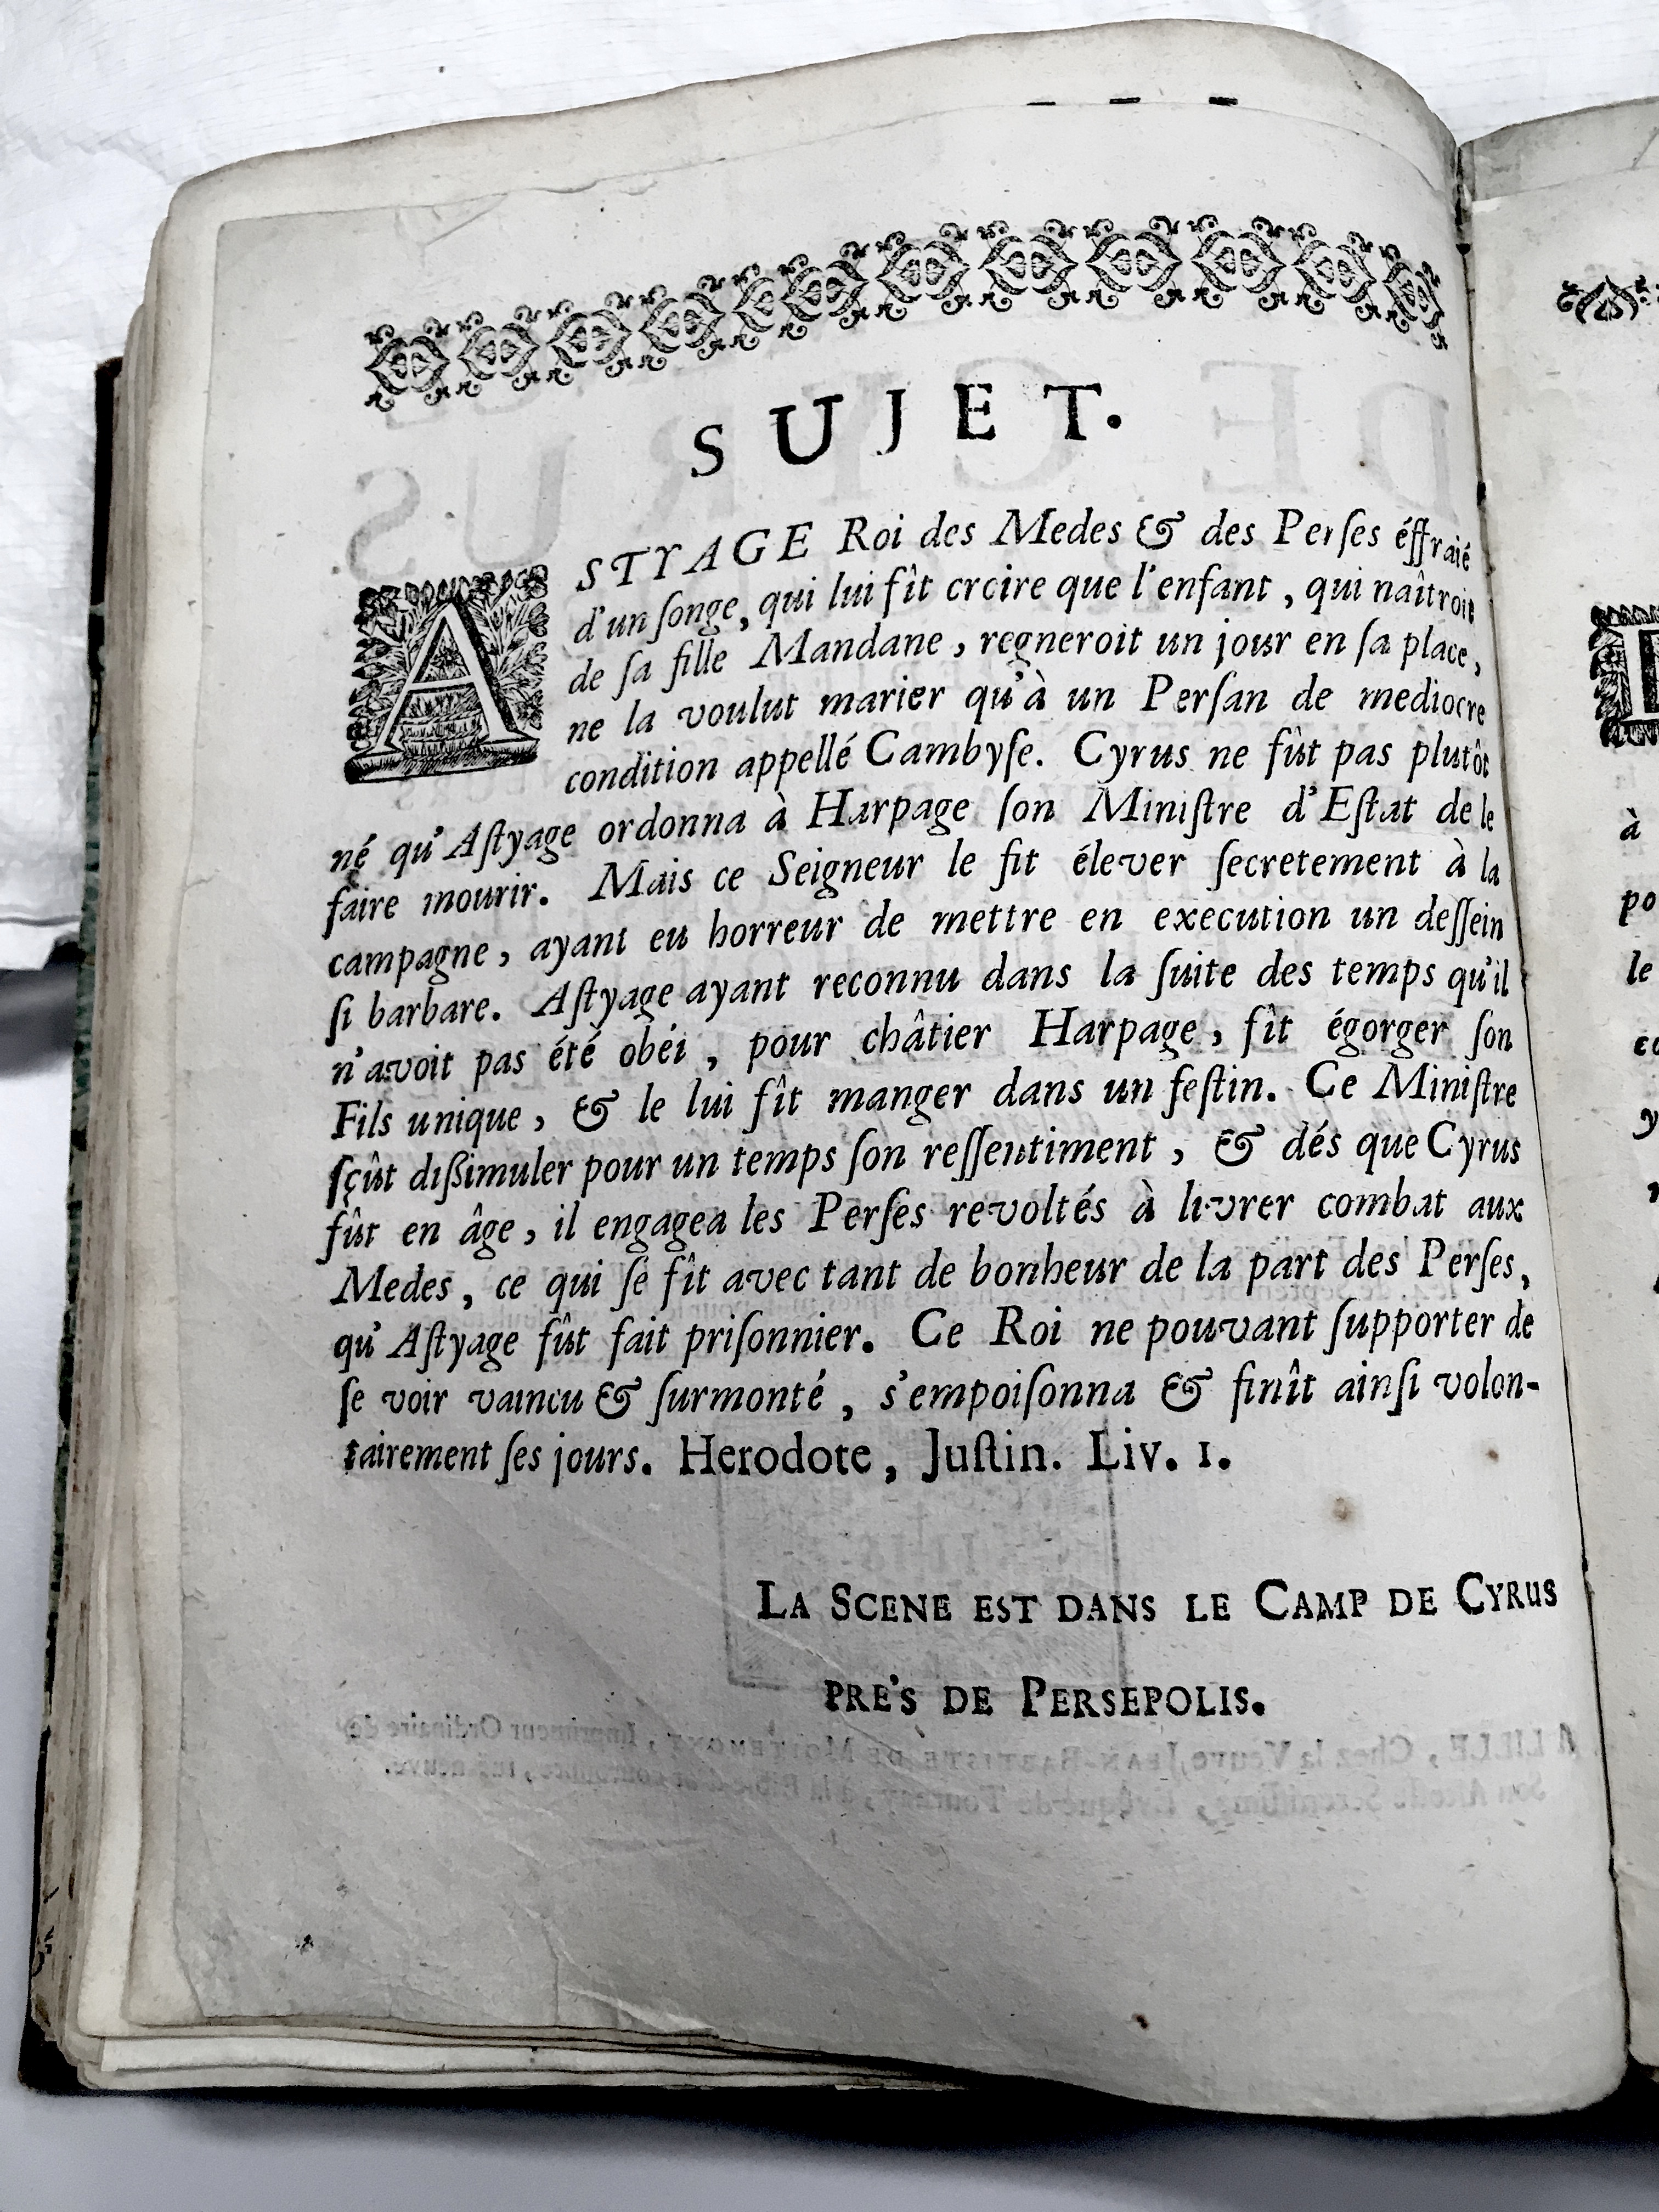 SUJET.
ASTYAGE Roi des Medes & des Perſes éffraié
d'un ſonge, qui lui fît croire que l'enfant, qui naîtroit
de ſa fille Mandane, regneroit un jour en ſa place,
ne la voulut marier qu'à un Perſan de mediocre
condition appellé Cambyſe. Cyrus ne fût pas plutôt
né qu'Aſtyage ordonna à Harpage ſon Miniſtre d'Eſtat de le
faire mourir. Mais ce Seigneur le fit élever ſecretement à la
campagne, ayant eu horreur de mettre en execution un deſſein
ſi barbare. Aſtyage ayant reconnu dans la ſuite des temps qu'il
n'avoit pas été obéi, pour châtier Harpage, fît égorger ſon
Fils unique, & le lui fît manger dans un feſtin. Ce Miniſtre
ſçût diſſimuler pour un temps ſon reſſentiment, & dés que Cyrus
fût en âge, il engagea les Perſes revoltés à livrer combat aux
Medes, ce qui ſe fît avec tant de bonheur de la part des Perſes,
qu'Aſtyage fût fait priſonnier. Ce Roi ne pouvant ſupporter de
ſe voir vaincu & ſurmonté, s'empoiſonna & finît ainſi volon-
tairement ſes jours. Herodote, Juſtin. Liv. 1.
LA SCENE EST DANS LE CAMP DE CYRUS
PRE'S DE PERSEPOLIS.
à
po
le